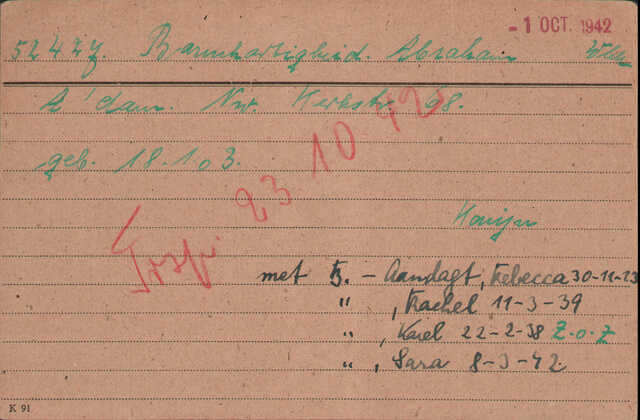 - 1 OCT. 1942
52427. Barmhartigheid. Abraham
A'dam. Nw. Kerkstr. 98.
geb. 18.1.03.
Trsp. 23 10 42
Konijn
met B. - Aandagt, Rebecca 30-11-13
" , Rachel 11-3-39
" , Karel 22-2-38 Z.o.Z
" , Sara 8-3-42
K 91